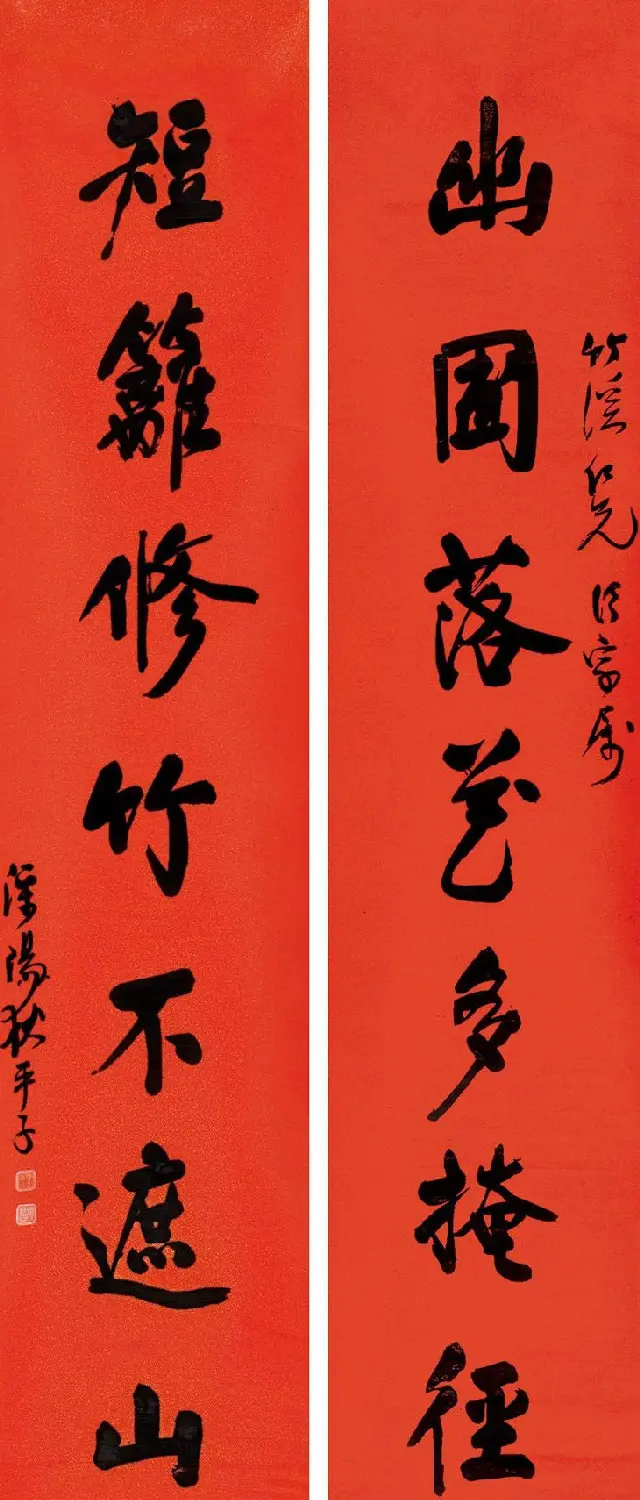 竹溪仁兄法家属
幽园落花多掩径
短籬修竹不遮山
溧陽狄平子